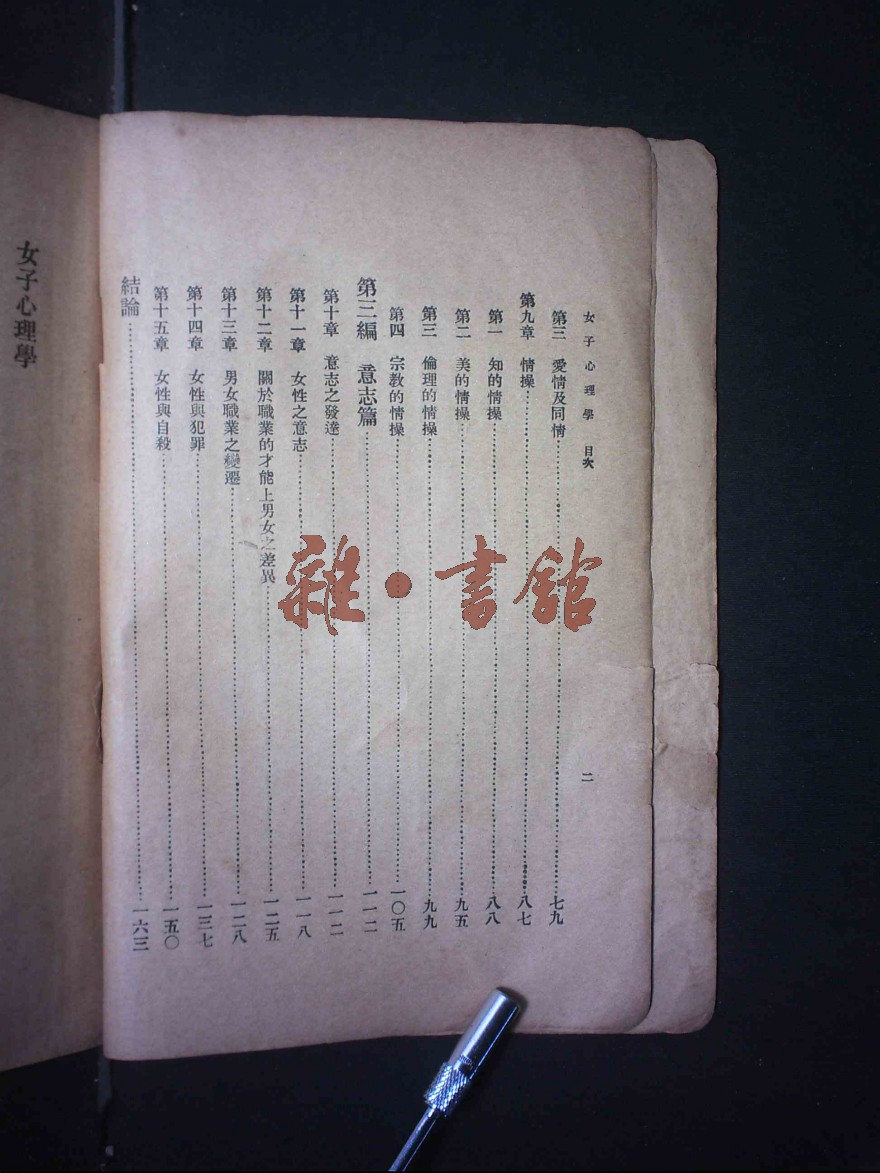 女子心理學 目次
二
第三 愛情及同情……七九
第九章 情操……八七
第一 知的情操……八八
第二 美的情操……九五
第三 倫理的情操……九九
第四 宗教的情操……一〇五
第三編 意志篇……一一二
第十章 意志之發達……一一二
第十一章 女性之意志……一一八
第十二章 關於職業的才能上男女之差異……一二五
第十三章 男女職業之變遷……一二八
第十四章 女性與犯罪……一三七
第十五章 女性與自殺……一五〇
結論……一六三
女子心理學
雜·書館